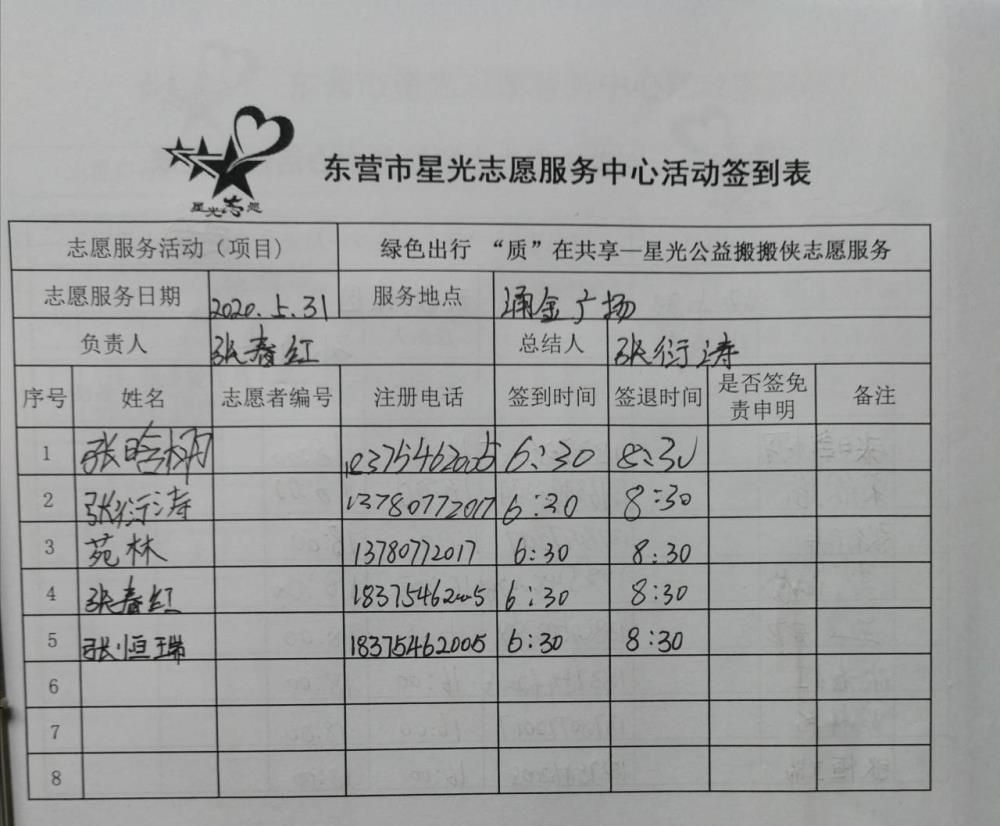 星光志愿
东营市星光志愿服务中心活动签到表
志愿服务活动（项目） 绿色出行 “质”在共享—星光公益搬搬侠志愿服务
志愿服务日期 2020.5.31 服务地点 涌金广场
负责人 张春红 总结人 张衍涛
序号 姓名 志愿者编号 注册电话 签到时间 签退时间 是否签免责申明 备注
1 张晗炳 18375462005 6:30 8:30
2 张衍涛 13780772017 6:30 8:30
3 苑林 13780772017 6:30 8:30
4 张春红 18375462005 6:30 8:30
5 张恒瑞 18375462005 6:30 8:30
6
7
8